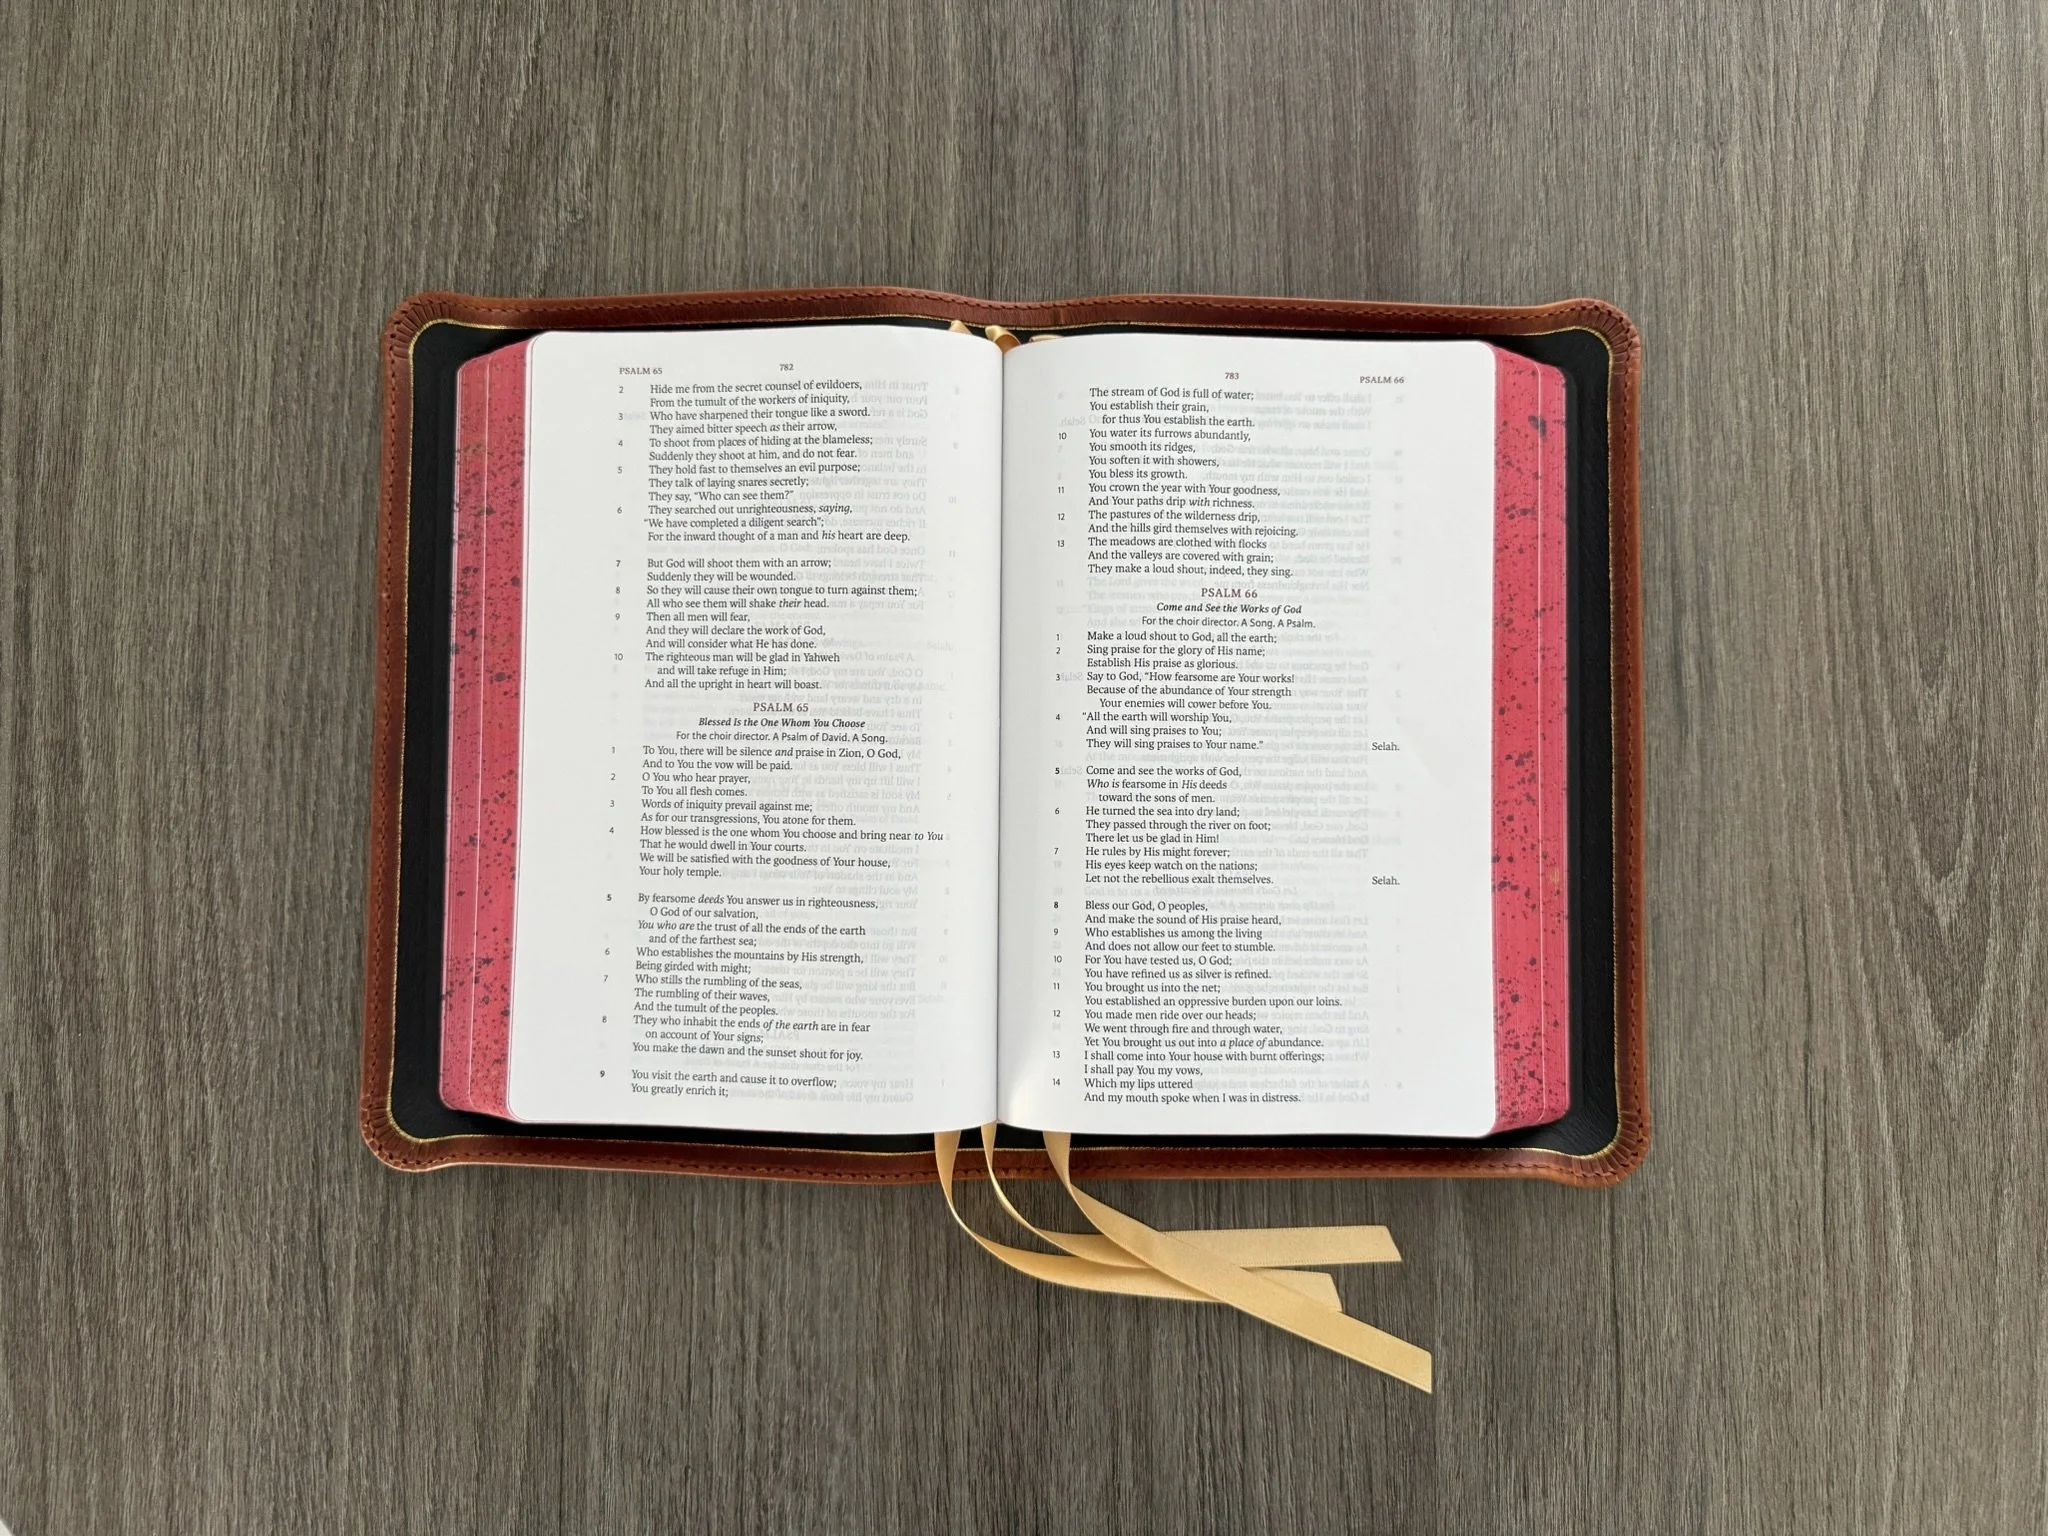 PSALM 65
782
2 Hide me from the secret counsel of evildoers,
From the tumult of the workers of iniquity,
3 Who have sharpened their tongue like a sword.
They aimed bitter speech as their arrow,
4 To shoot from places of hiding at the blameless;
Suddenly they shoot at him, and do not fear.
5 They hold fast to themselves an evil purpose;
They talk of laying snares secretly;
They say, “Who can see them?”
6 They searched out unrighteousness, saying,
“We have completed a diligent search”;
For the inward thought of a man and his heart are deep.
7 But God will shoot them with an arrow;
Suddenly they will be wounded.
8 So they will cause their own tongue to turn against them;
All who see them will shake their head.
9 Then all men will fear,
And they will declare the work of God,
And will consider what He has done.
10 The righteous man will be glad in Yahweh
and will take refuge in Him;
And all the upright in heart will boast.
PSALM 65
Blessed Is the One Whom You Choose
For the choir director. A Psalm of David. A Song.
1 To You, there will be silence and praise in Zion, O God,
And to You the vow will be paid.
2 O You who hear prayer,
To You all flesh comes.
3 Words of iniquity prevail against me;
As for our transgressions, You atone for them.
4 How blessed is the one whom You choose and bring near to You
That he would dwell in Your courts.
We will be satisfied with the goodness of Your house,
Your holy temple.
5 By fearsome deeds You answer us in righteousness,
O God of our salvation,
You who are the trust of all the ends of the earth
and of the farthest sea;
6 Who establishes the mountains by His strength,
Being girded with might;
7 Who stills the rumbling of the seas,
The rumbling of their waves,
And the tumult of the peoples.
8 They who inhabit the ends of the earth are in fear
on account of Your signs;
You make the dawn and the sunset shout for joy.
9 You visit the earth and cause it to overflow;
You greatly enrich it;
783
PSALM 66
The stream of God is full of water;
You establish their grain,
for thus You establish the earth.
10 You water its furrows abundantly,
You smooth its ridges,
You soften it with showers,
You bless its growth.
11 You crown the year with Your goodness,
And Your paths drip with richness.
12 The pastures of the wilderness drip,
And the hills gird themselves with rejoicing.
13 The meadows are clothed with flocks
And the valleys are covered with grain;
They make a loud shout, indeed, they sing.
PSALM 66
Come and See the Works of God
For the choir director. A Song. A Psalm.
1 Make a loud shout to God, all the earth;
2 Sing praise for the glory of His name;
Establish His praise as glorious.
3 Say to God, “How fearsome are Your works!
Because of the abundance of Your strength
Your enemies will cower before You.
4 “All the earth will worship You,
And will sing praises to You;
They will sing praises to Your name.” Selah.
5 Come and see the works of God,
Who is fearsome in His deeds
toward the sons of men.
6 He turned the sea into dry land;
They passed through the river on foot;
There let us be glad in Him!
7 He rules by His might forever;
His eyes keep watch on the nations;
Let not the rebellious exalt themselves. Selah.
8 Bless our God, O peoples,
And make the sound of His praise heard,
9 Who establishes us among the living
And does not allow our feet to stumble.
10 For You have tested us, O God;
You have refined us as silver is refined.
11 You brought us into the net;
You established an oppressive burden upon our loins.
12 You made men ride over our heads;
We went through fire and through water,
Yet You brought us out into a place of abundance.
13 I shall come into Your house with burnt offerings;
I shall pay You my vows,
14 Which my lips uttered
And my mouth spoke when I was in distress.